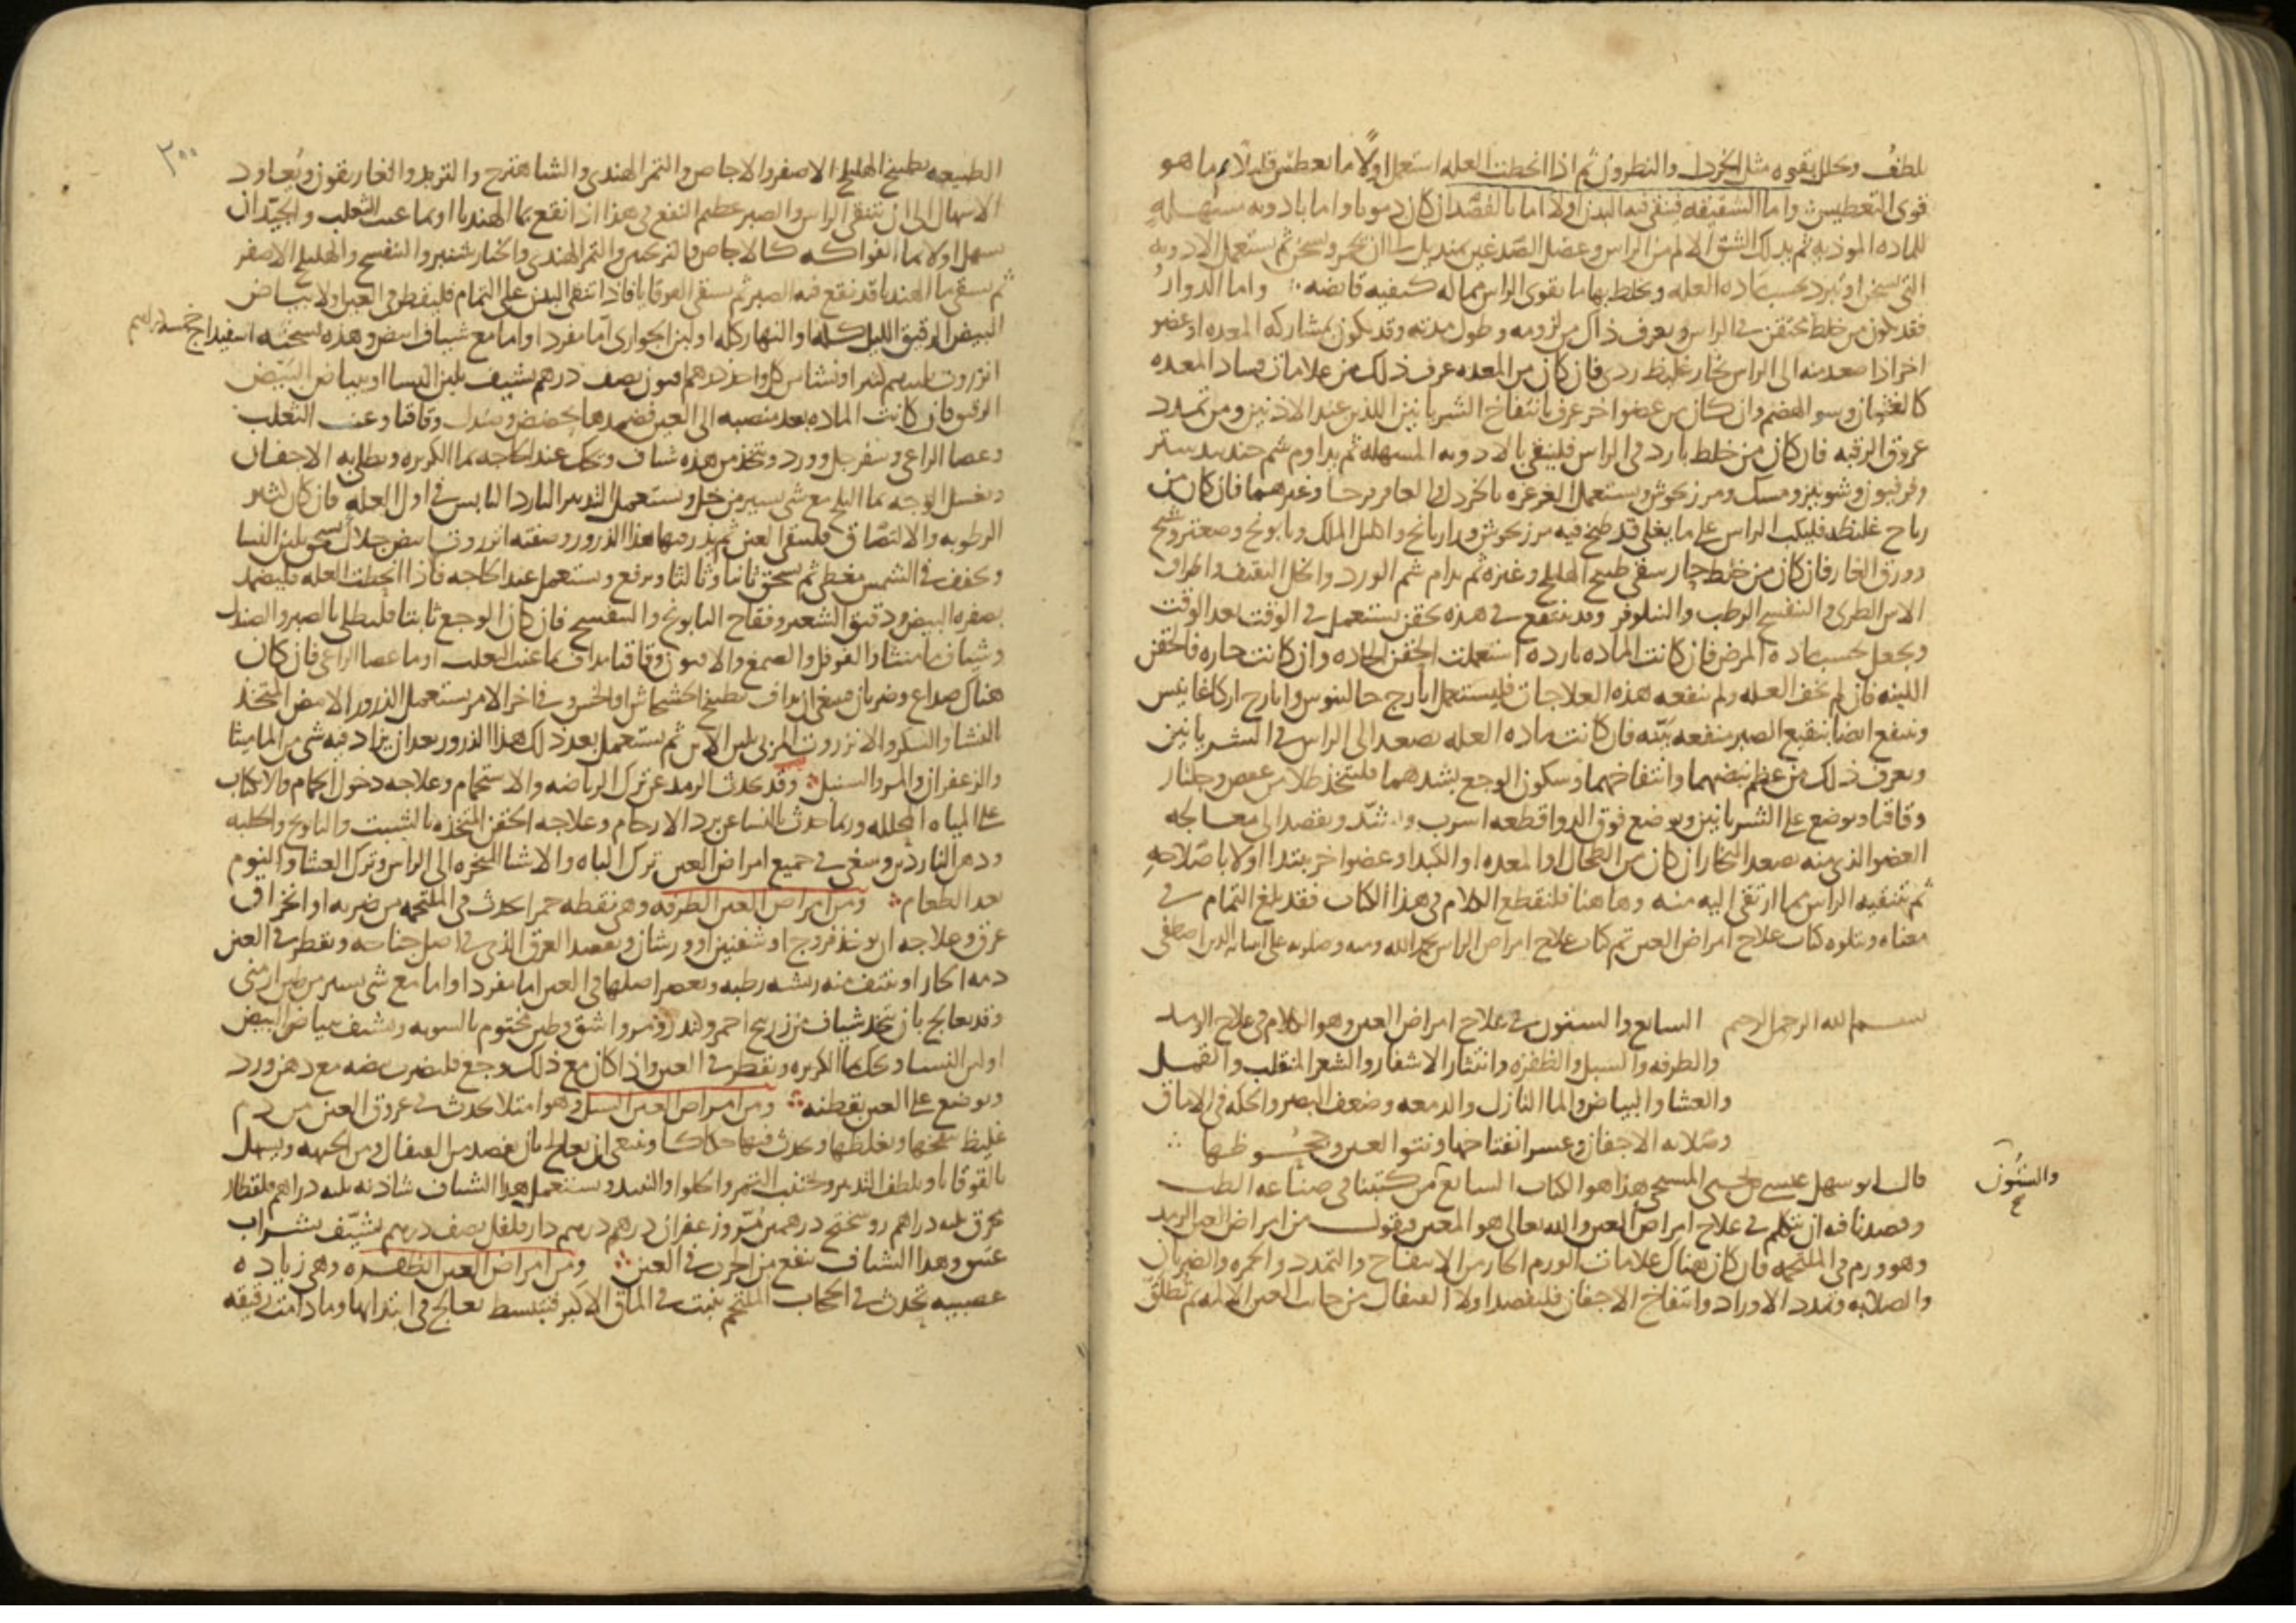 يلطف ويحلل بقوه مثل الخردل والنطرون ثم اذا انحطت العله استعمل اولا ما يعطس قليلا ثم ما هو
قوى التعطيس واما الشقيقه فينقى فيه البدن اولا اما بالفصد ان كان دمويا واما بادويه مسهله
للماده الموذيه ثم يدلك الشق الالم من الراس وعضل الصدغين بمنديل الى ان يحمر ويسخن ثم يستعمل الادويه
التى تسخن او تبرد بحسب ماده العله ويخلط بها ما يقوى الراس مما له كيفيه قابضه واما الدوار
فقد يكون من خلط يحتقن فى الراس ويعرف ذلك من لزومه وطول مدته وقد يكون بمشاركه المعده او عضو
اخر اذا صعد منه الى الراس بخار غليظ ردى فان كان من المعده عرف ذلك من علامات فساد المعده
كالغثيان وسو الهضم وان كان من عضو اخر عرف بانتفاخ الشريانين اللذين عند الاذنين ومن تمدد
عروق الرقبه فان كان من خلط بارد فى الراس فلينقى بالادويه المسهله ثم يداوم شم جندبيدستر
وفربيون وشونيز ومسك ومرزنجوش ويستعمل الغرغره بالخردل والعاقرقرحا وغيرهما فان كان من
رياح غليظه فليكب الراس على ما يغلى قد طبخ فيه مرزنجوش وبرنجاسف واكليل الملك وبابونج وصعتر وشيح
وورق الغار فان كان من خلط حار سقى طبيخ الهليلج وغيره ثم يدام شم الورد والخل الثقيف واطراف
الاس الطرى والبنفسج الرطب والنيلوفر وقد ينتفع فى هذه بحقن يستعمل فى الوقت بعد الوقت
ويجعل بحسب ماده المرض فان كانت الماده بارده استعملت الحقن الحاده وان كانت حاره فالحقن
اللينه فان لم تخف العله ولم ينفعه هذه العلاجات فليستعمل ايارج جالينوس وايارج اركاغانيس
وينفع ايضا بنقيع الصبر منفعه بينه فان كانت ماده العله تصعد الى الراس فى الشريانين
ويعرف ذلك من عظم نبضهما وانتفاخهما وسكون الوجع بشدهما فليتخذ طلا من عفص وجلنار
وقاقيا ويوضع على الشريانين ويوضع فوق الدوا قطعه اسرب ويشد ويقصد الى معالجه
العضو الذى منه يصعد البخار ان كان من الطحال او المعده او الكبد او عضو اخر يبتدا اولا باصلاحه
ثم بتنقيه الراس مما ارتقى اليه منه وهاهنا فلنقطع الكلام فى هذا الكتاب فقد بلغ التمام فى
معناه ويتلوه كتاب علاج امراض العين تم كتاب علاج امراض الراس بحمد الله ومنه وصلوته على انبيائه الذين اصطفى
بسم الله الرحمن الرحيم السابع والستون فى علاج امراض العين وهو الكلام فى علاج الرمد
والطرفه والسبل والظفره وانتثار الاشفار والشعر المنقلب والقمل
والعشا والبياض والما النازل والدمعه وضعف البصر والحكه فى الاماق
وصلابه الاجفان وعسر انفتاحها ونتو العين وجحوظها
قال ابو سهل عيسى بن يحيى المسيحى هذا هو الكتاب السابع من كتبنا فى صناعه الطب
والستون
وقصدنا فيه ان نتكلم فى علاج امراض العين والله تعالى هو المعين فنقول من امراض العين الرمد
وهو ورم فى الملتحمه فان كان هناك علامات الورم الحار من الانتفاخ والتمدد والحمره والضربان
والصلابه وتمدد الاوراد وانتفاخ الاجفان فليفصد اولا القيفال من جانب العين الالمه ثم تطلق
٣٠٠
الطبيعه بطبيخ الهليلج الاصفر والاجاص والتمر الهندى والشاهترج والتربد والغاريقون ويعاود
الاسهال الى ان ينقى الراس والصبر عظيم النفع فى هذا اذا انقع بما الهندبا او بما عنب الثعلب والجيد ان
يسهل اولا بما الفواكه كالاجاص والترنجبين والتمر الهندى والخيارشنبر والبنفسج والهليلج الاصفر
ثم يسقى ما الهندبا قد نقع فيه الصبر ثم يسقى القوقايا فاذا انتقى البدن على التمام فليقطر فى العين اولا بياض
البيض الرقيق الليل كله او النهار كله او لبن الجوارى اما مفردا واما مع شياف ابيض وهذه نسخته اسفيداج خمسه دراهم
انزروت ثلثه كثيرا ونشا من كل واحد درهم افيون نصف درهم يشيف بلبن النسا او ببياض البيض
الرقيق فان كانت الماده بعد منصبه الى العين فضمدها بحضض وصندل وقاقيا وعنب الثعلب
وعصا الراعى وسفرجل وورد ويتخذ من هذه شياف ويحك عند الحاجه بما الكزبره ويطلى به الاجفان
ويغسل الوجه بما الثلج مع شى يسير من خل ويستعمل التدبير البارد اليابس فى اول العله فان كان كثير
الرطوبه والالتصاق فلينقى العين ثم يذر فيها هذا الذرور وصفته انزروت ابيض جلال يسحق بلبن النسا
ويجفف فى الشمس مغطى ثم يسحق ثانيا وثالثا ويرفع ويستعمل عند الحاجه فاذا انحطت العله فليضمد
بصفره البيض ودقيق الشعير وفقاح البابونج والبنفسج فان كان الوجع ثابتا فليطلى بالصبر والصندل
وشياف ماميثا والفوفل والصمغ والافيون وقاقيا مداف بما عنب الثعلب او ما عصا الراعى فان كان
هناك صداع وضربان فينبغى ان يداف بطبيخ الخشخاش او الخس وفى اخر الامر يستعمل الذرور الابيض المتخذ
النشا والسكر والانزروت المربى بلبن الاتن ثم يستعمل بعد ذلك هذا الذرور بعد ان يزاد فيه شى من الماميثا
والزعفران والمر والسنبل وقد يحدث الرمد عن ترك الرياضه والاستحمام وعلاجه دخول الحمام والانكباب
على المياه المحلله وربما حدث بالنسا عن برد الارحام وعلاجه الحقن المتخذه بالشبت والبابونج والحلبه
ودهن الناردين وينبغى فى جميع امراض العين ترك الباه والاشيا المبخره الى الراس وترك العشا والنوم
بعد الطعام ومن امراض العين الطرفه وهى نقطه حمرا تحدث فى الملتحمه من ضربه او انخراق
عرق وعلاجه ان يوخذ فروج او شفنين او ورشان ويفصد العرق الذى فى اصل جناحه ويقطر فى العين
دمه الحار او ينتف منه ريشه رطبه ويعصر اصلها فى العين اما مفردا واما مع شى يسير من طين ارمنى
وقد يعالج بان يتخذ شياف من زرنيخ احمر وكندر ومر واشق وطين مختوم بالسويه ويشيف ببياض البيض
او لبن النسا ويحك بما الكزبره ويقطر فى العين واذا كان مع ذلك وجع فليضرب بيضه مع دهن ورد
ويوضع على العين بقطنه ومن امراض العين السبل وهو امتلا يحدث فى عروق العين من دم
غليظ يسخنها ويغلظها ويحدث فيها حكاكا وينبغى ان يعالج بان يفصد من القيفال ومن الجبهه ويسهل
بالقوقايا ويلطف التدبير ويجتنب التمر والحلوا والنبيذ ويستعمل هذا الشياف شاذنه ثلثه دراهم قلقطار
محرق ثلثه دراهم روسختج درهمين مر وزعفران درهم درهم دارفلفل نصف درهم يشيف بشراب
عتيق وهذا الشياف ينفع من الجرب فى العين ومن امراض العين الظفره وهى زياده
عصبيه تحدث فى الحجاب الملتحم تنبت فى الماق الاكبر فتنبسط تعالج فى ابتدائها وما دامت رقيقه